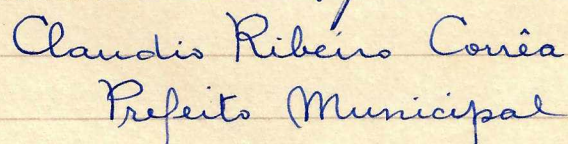 Claudio Ribeiro Corrêa
Prefeito Municipal